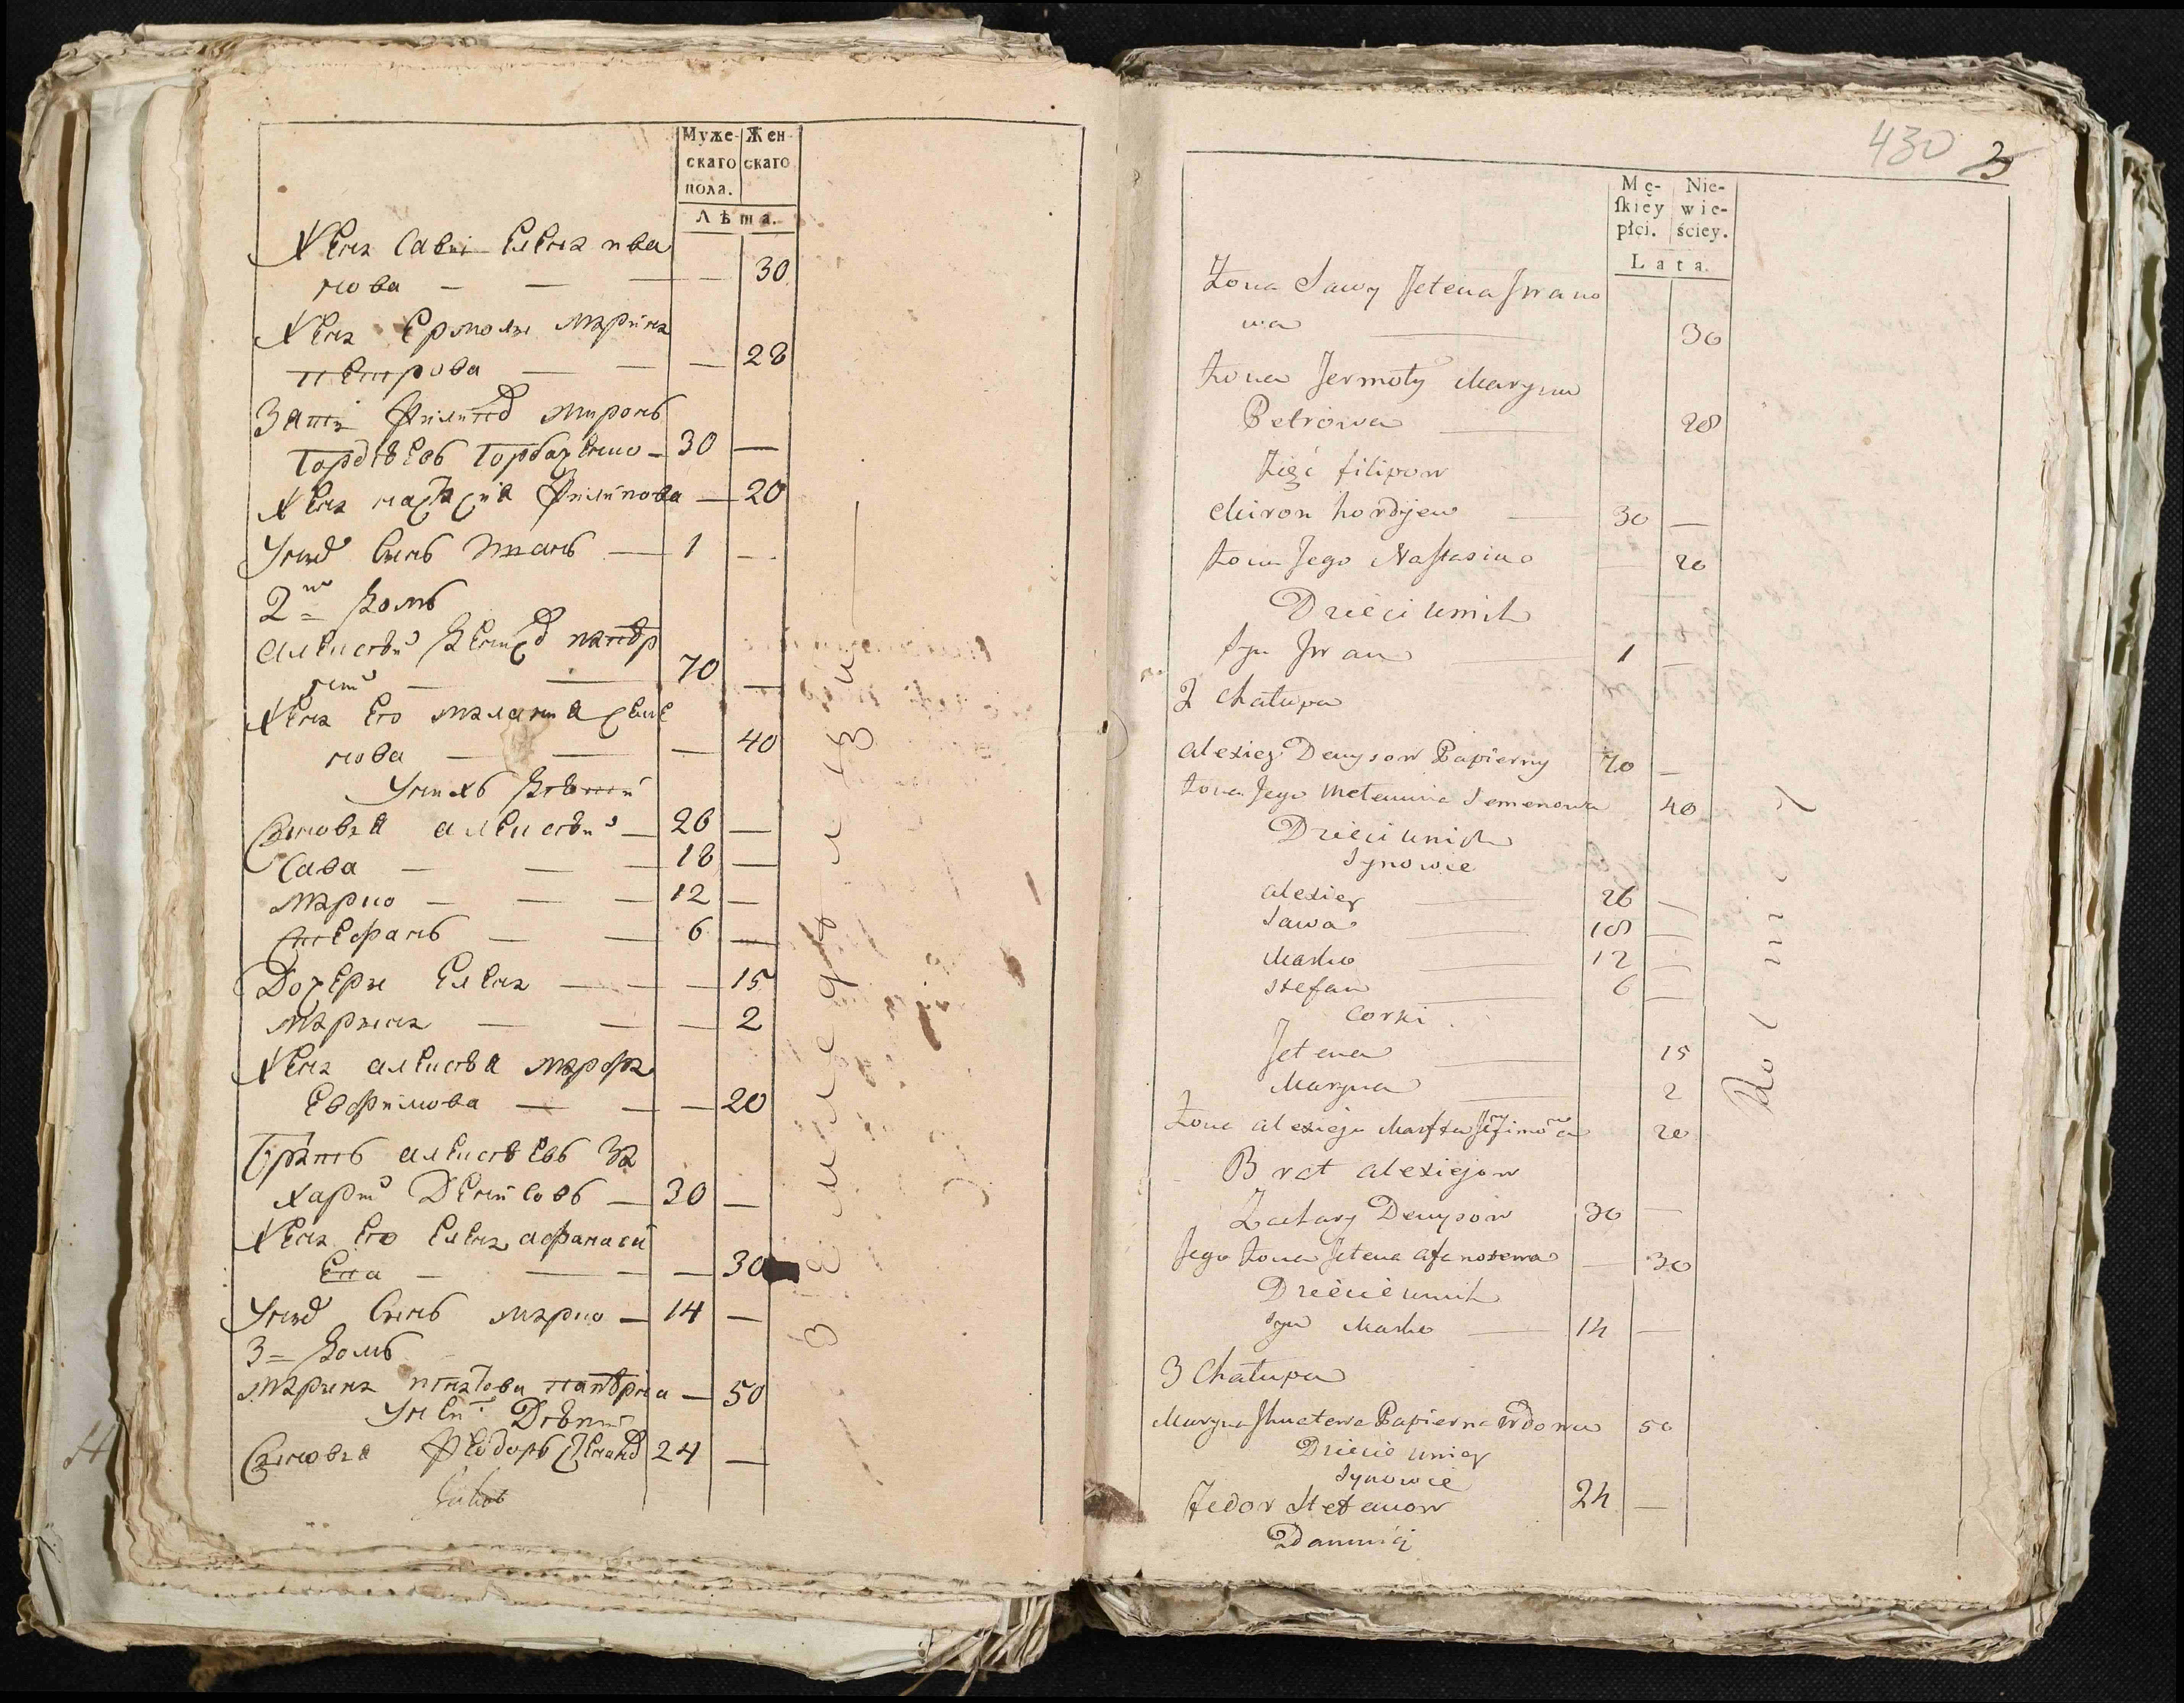 Муже- Жен-
скаго скаго
пола.
Лѣта.
Жена Савы Елена Ива
нова — — — — 30
Жена Ермолы Марина
Петрова — — — 28
Зять Филиповъ Миронъ
Гордѣевъ — 30 —
Жена Настасия Филипова — 20
У нихъ сынъ Иванъ — 1 —
2й домъ
Алексѣй Денисовъ
— — 70 —
Жена его Мелания Семе
нова — — — 40
У нихъ дѣти
Сыновья Алексѣй — 26 —
Сава — — — 18 —
Марко — — — 12 —
Стефанъ — — 6 —
Дочери Елена — — — 15
Марина — — — 2
Жена Алексѣя Марфа
Евфимова — — — 20
Братъ Алексѣевъ За
харій Денисовъ — 30 —
Жена его Елена Афанасъ
ева — — — — 30
У нихъ сынъ Марко — 14 —
3 = домъ
Марина — 50
У ней дѣти
Сыновья Феодоръ 24 —
Земледѣльцы
430 3
Mę- Nie-
skiey wie-
płci. ściey.
Lata.
Żona Sawy Jełena Jwano
wa — 30
Żona Jermoły Maryna
Petrowa — 28
Zięć filipow
Miron hordyjew — 30 —
Żona Jego Nastasia — 20
Dzieci unich
Syn Jwan — 1 —
2 Chałupa
Alexiey Denysow Papierny 70 —
Żona Jego Mełannia Semenowa 40
Dzieci unich
Synowie
Alexiey — 26 —
Sawa — 18 —
Marko — 12 —
Stefan — 6 —
Corki
Jełena — 15
Maryna — 2
Żona Alexieja Marfta Jefimowa 20
Brat Alexiejow
Zachary Denysow 30 —
Jego Żona Jełena Afanosewa — 30
Dziecie unich
Syn Marko — 14 —
3 Chałupa
Maryna Papierna Wdowa 50
Dziecie uniey
Synowie
Fedor Stefanow 24 —
Rolnicy